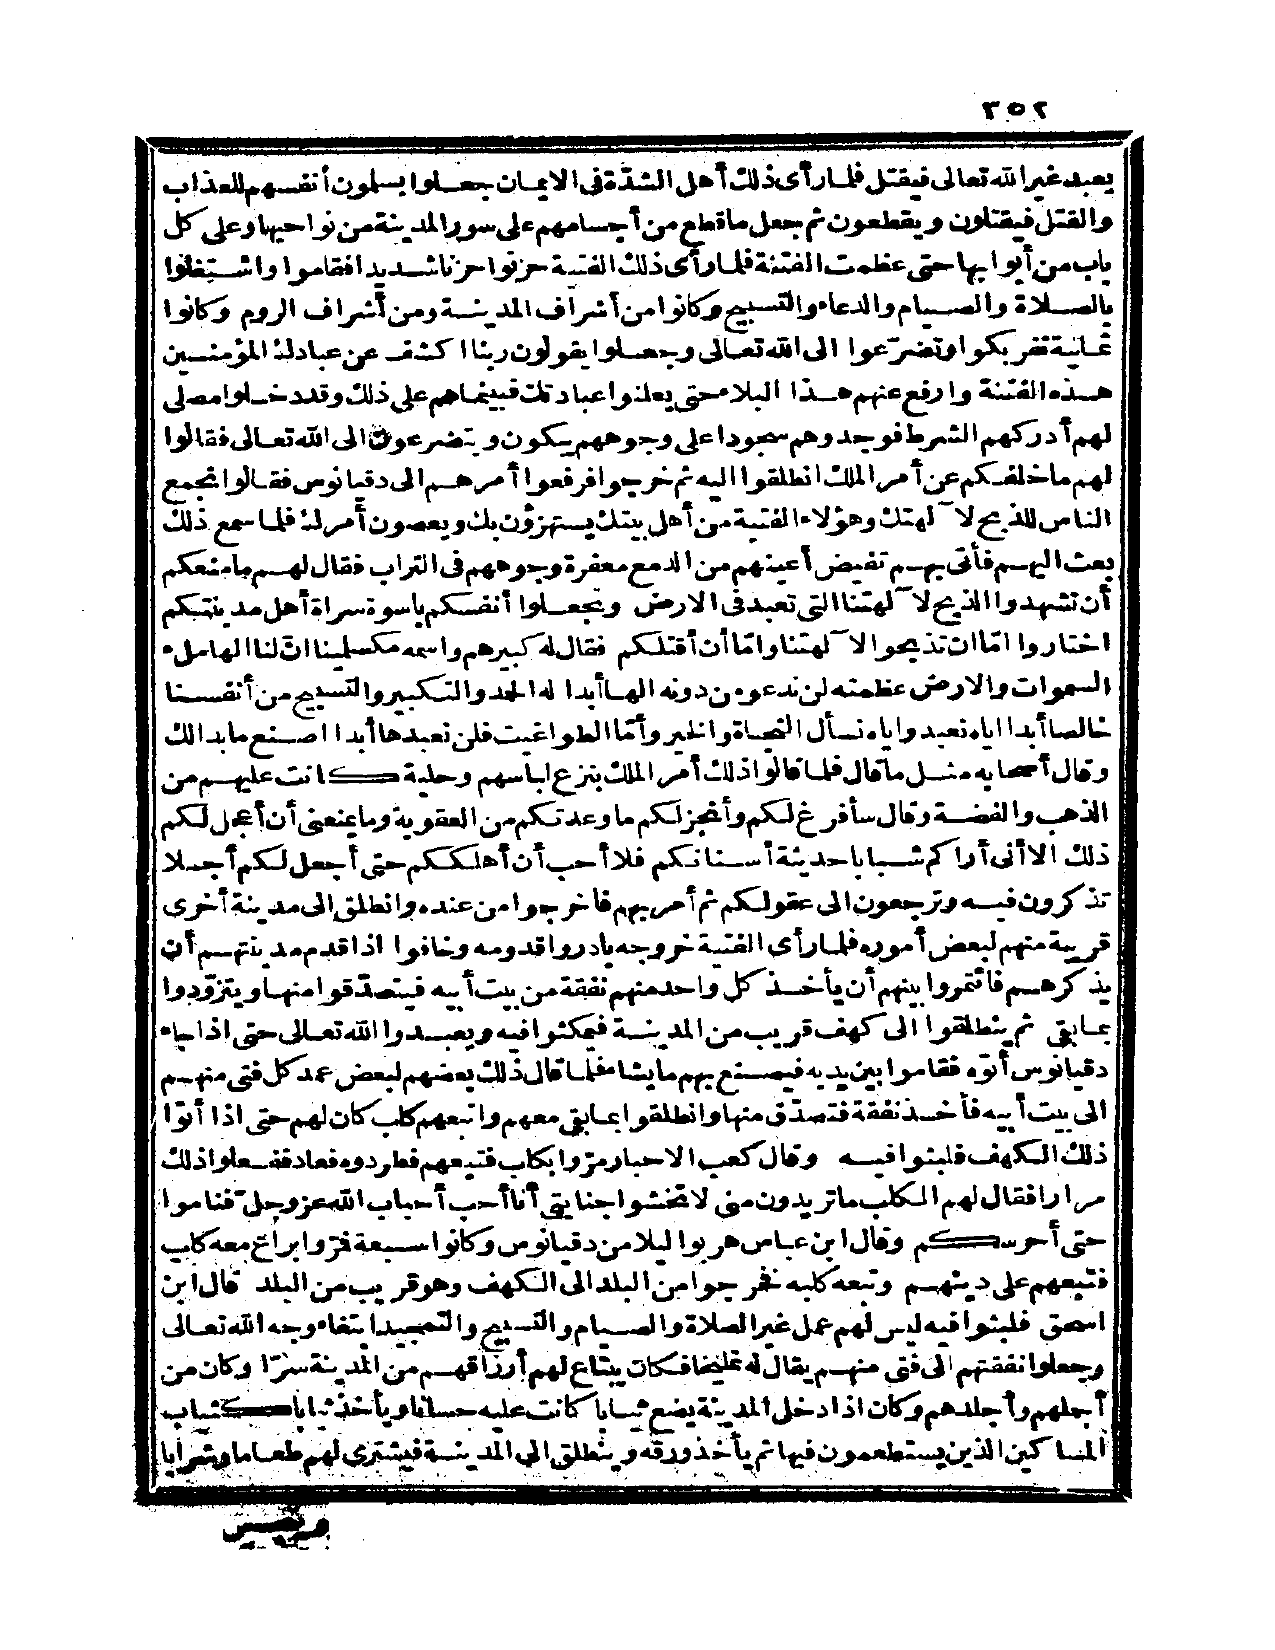 ٣٥٢
يعبد غير الله تعالى فيقتل فلما رأى ذلك أهل الشدّة فى الايمان جعلوا يسلمون أنفسهم للعذاب
والقتل فيقتلون ويقطعون ثم جعل ما قطع من أجسامهم على سور المدينة من نواحيها وعلى كل
باب من أبوابها حتى عظمت الفتنة فلما رأى ذلك الفتية حزنوا حزنا شديدا فقاموا واشتغلوا
بالصلاة والصيام والدعاء والتسبيح وكانوا من أشراف المدينة ومن أشراف الروم وكانوا
ثمانية نفر بكوا وتضرّعوا الى الله تعالى وجعلوا يقولون ربنا اكشف عن عبادك المؤمنين
هذه الفتنة وارفع عنهم هذا البلاء حتى يعلنوا عبادتك فبينماهم على ذلك وقد دخلوا مصلى
لهم أدركهم الشرط فوجدوهم سجودا على وجوههم يبكون ويتضرعون الى الله تعالى فقالوا
لهم ما خلفكم عن أمر الملك انطلقوا اليه ثم خرجوا فرفعوا أمرهم الى دقيانوس فقالوا تجمع
الناس للذبح لآلهتك وهؤلاء الفتية من أهل بيتك يستهزؤن بك ويعصون أمرك فلما سمع ذلك
بعث اليهم فأتى بهم تفيض أعينهم من الدمع معفرة وجوههم فى التراب فقال لهم ما منعكم
أن تشهدوا الذبح لآلهتنا التى تعبد فى الارض وتجعلوا أنفسكم باسوة سراة أهل مدينتكم
اختاروا امّا ان تذبحوا لآلهتنا وامّا أن أقتلكم فقال له كبيرهم واسمه مكسلينا انّ لنا الها ملء
السموات والارض عظمته لن ندعو من دونه الها أبدا له الحمد والتكبير والتسبيح من أنفسنا
خالصا أبدا اياه نعبد واياه نسأل النجاة والخير وأمّا الطواغيت فلن نعبدها أبدا اصنع ما بدا لك
وقال أصحابه مثل ما قال فلما قالوا ذلك أمر الملك بنزع لباسهم وحلية كانت عليهم من
الذهب والفضة وقال سأفرغ لكم وأنجز لكم ما وعدتكم من العقوبة وما يمنعنى أن أعجل لكم
ذلك الا أنى أراكم شبابا حديثة أسنانكم فلا أحب أن أهلككم حتى أجعل لكم أجلا
تذكرون فيه وترجعون الى عقولكم ثم أمر بهم فأخرجوا من عنده وانطلق الى مدينة أخرى
قريبة منهم لبعض أموره فلما رأى الفتية خروجه بادروا قدومه وخافوا اذا قدم مدينتهم أن
يذكرهم فائتمروا بينهم أن يأخذ كل واحد منهم نفقة من بيت أبيه فيتصدّقوا منها ويتزوّدوا
بما بقى ثم ينطلقوا الى كهف قريب من المدينة فيمكثوا فيه ويعبدوا الله تعالى حتى اذا جاء
دقيانوس أتوه فقاموا بين يديه فيصنع بهم ما يشاء فلما قال ذلك بعضهم لبعض عمد كل فتى منهم
الى بيت أبيه فأخذ نفقة فتصدّق منها وانطلقوا بما بقى معهم واتبعهم كلب كان لهم حتى اذا أتوا
ذلك الكهف فلبثوا فيه وقال كعب الاحبار مرّوا بكلب فتبعهم فطردوه فعاد ففعلوا ذلك
مرارا فقال لهم الكلب ما تريدون منى لا تخشوا جنايتى أنا أحب أحباب الله عز وجل فناموا
حتى أحرسكم وقال ابن عباس هربوا ليلا من دقيانوس وكانوا سبعة فرّوا براع معه كلب
فتبعهم على دينهم وتبعه كلبه فخرجوا من البلد الى الكهف وهو قريب من البلد قال ابن
اسحق فلبثوا فيه ليس لهم عمل غير الصلاة والصيام والتسبيح والتحميد ابتغاء وجه الله تعالى
وجعلوا نفقتهم الى فتى منهم يقال له تمليخا فكان يبتاع لهم أرزاقهم من المدينة سرّا وكان من
أجملهم وأجلدهم وكان اذا دخل المدينة يضع ثيابا كانت عليه حسانا ويأخذ ثيابا كثياب
المساكين الذين يستطعمون فيها ثم يأخذ ورقه وينطلق الى المدينة فيشترى لهم طعاما وشرابا